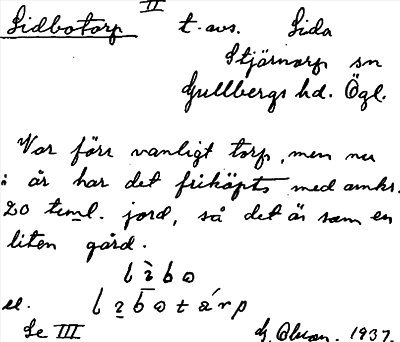 Sidbotorp II t. avs. Sida
Stjärnorp sn
Gullbergs hd. Ögl.
Var förr vanligt torp, men nu
i år har det friköpts med omkr.
20 tunnl. jord, så det är som en
liten gård.
el.
Se III
G. Olson. 1937.